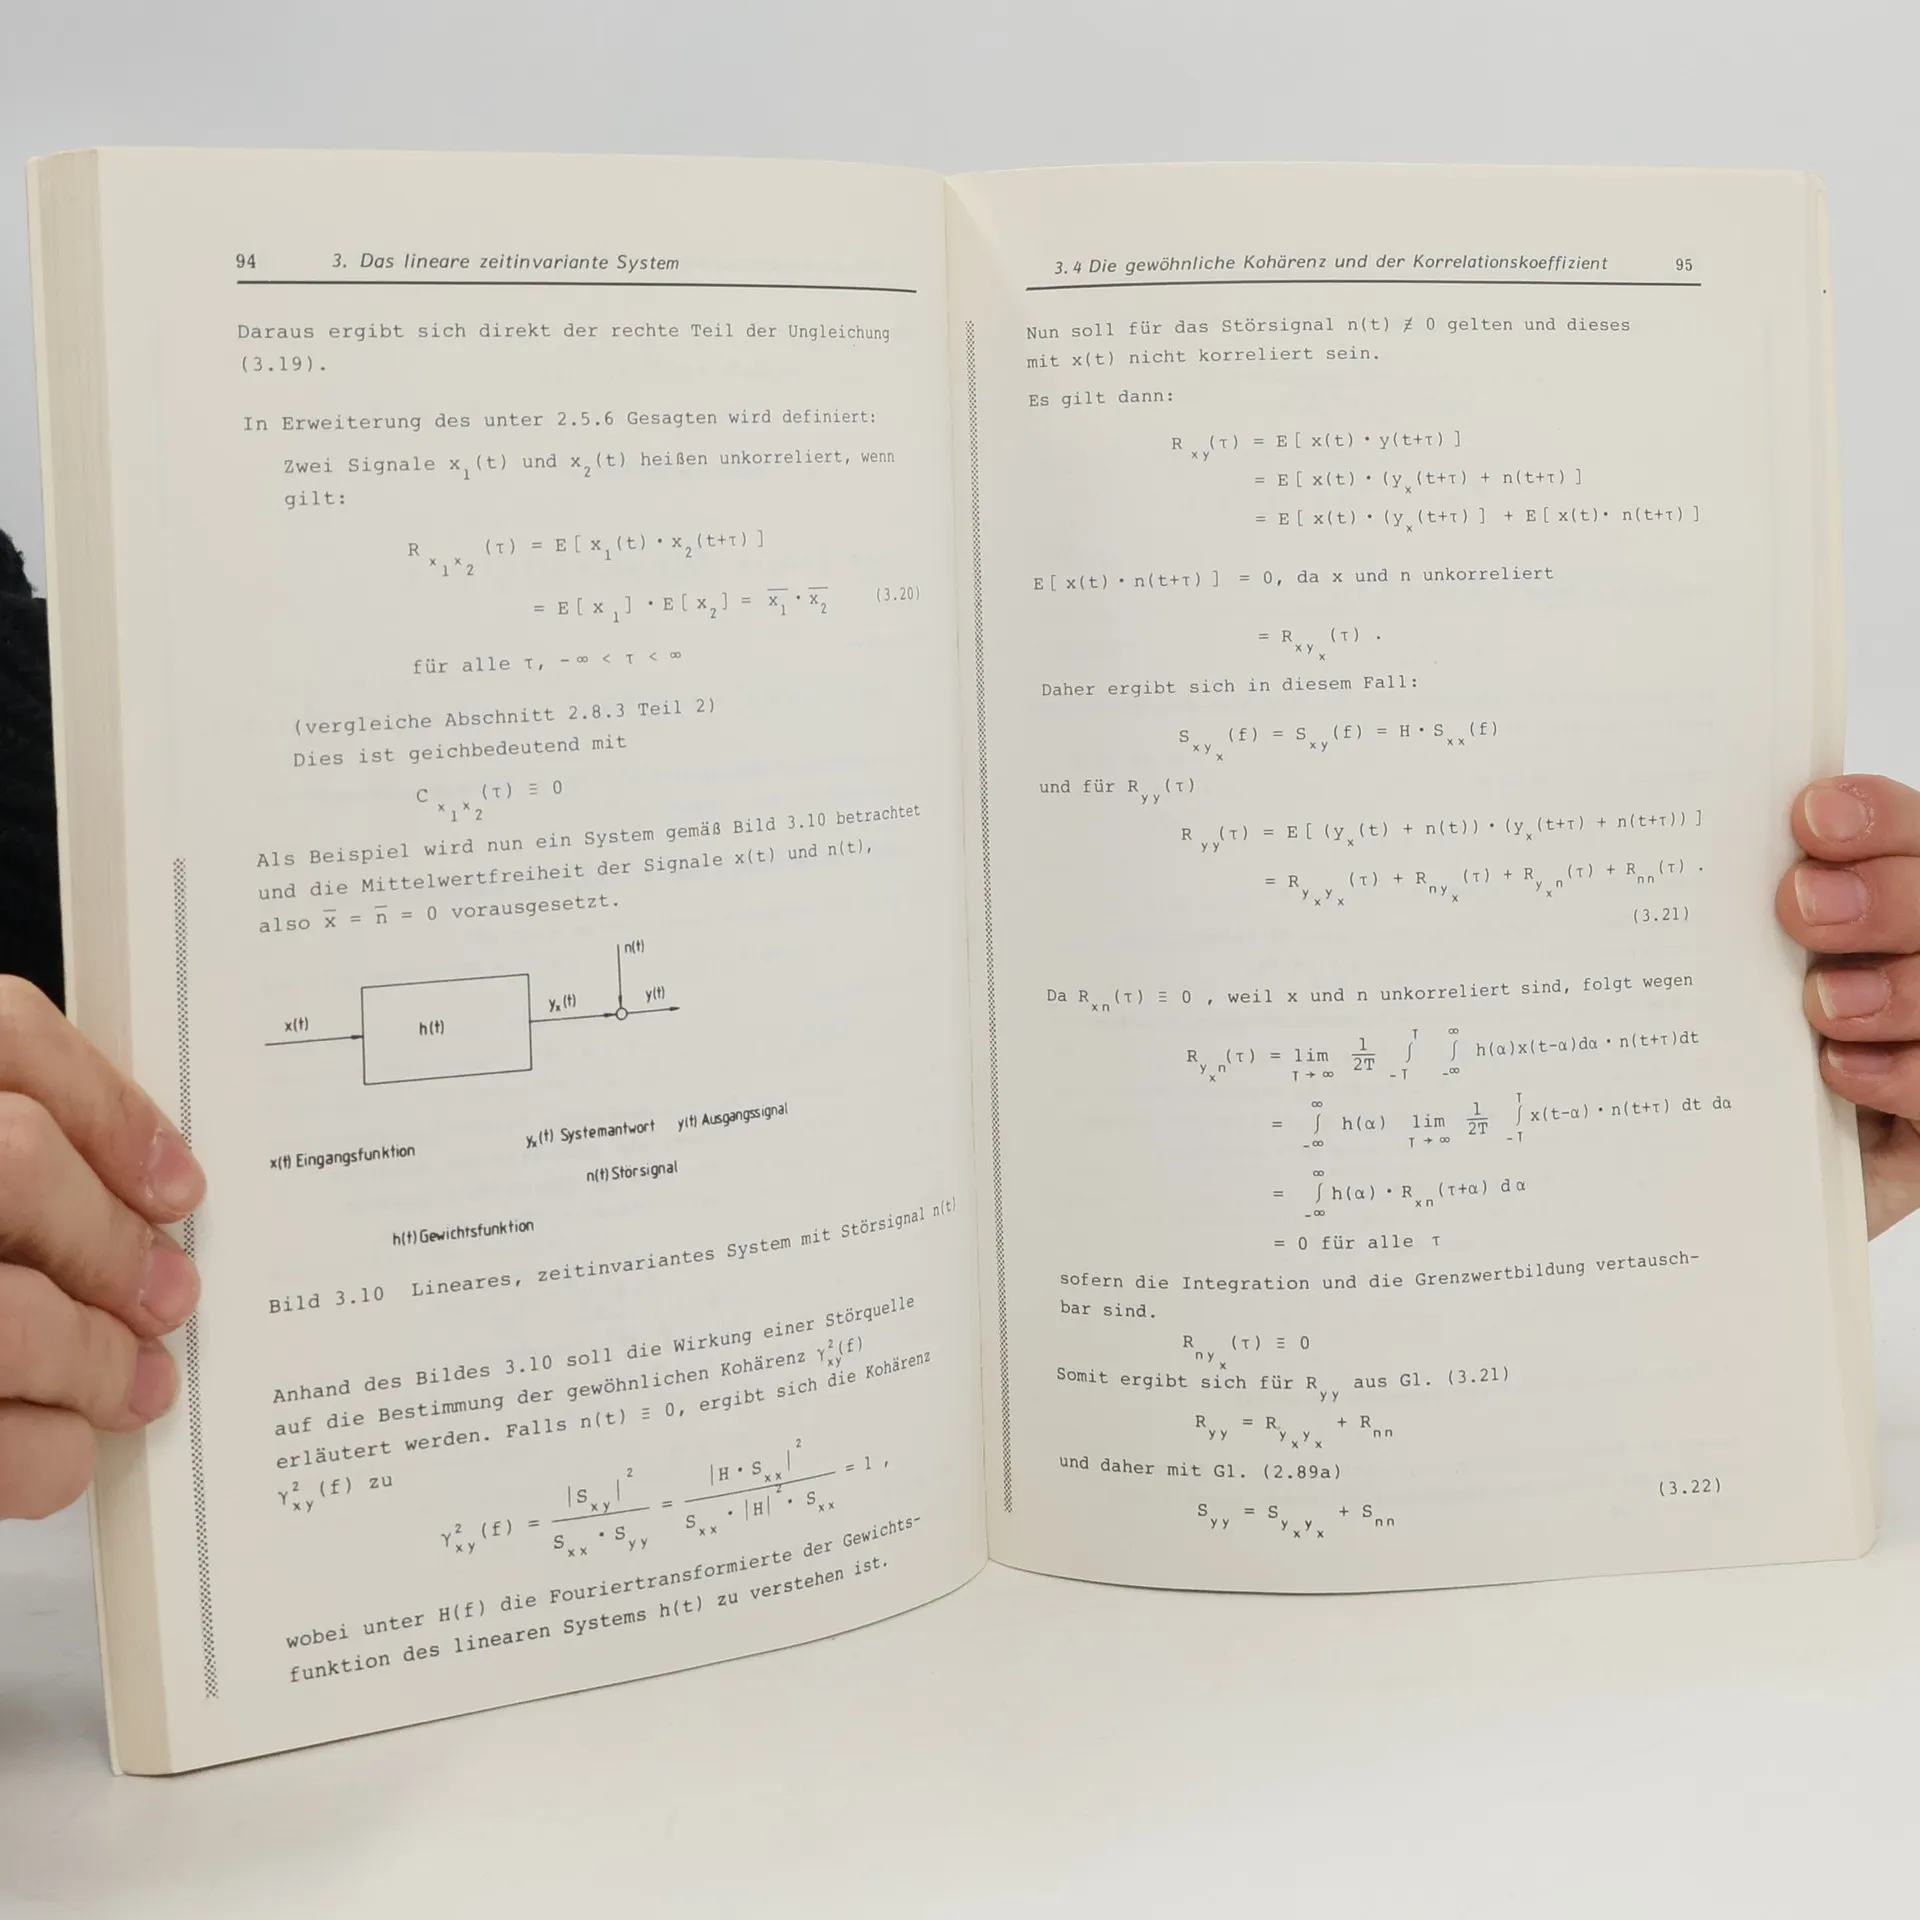 94 3. Das lineare zeitinvariante System
Daraus ergibt sich direkt der rechte Teil der Ungleichung
(3.19).
In Erweiterung des unter 2.5.6 Gesagten wird definiert:
Zwei Signale x₁(t) und x₂(t) heißen unkorreliert, wenn
gilt:
R_{x₁x₂}(τ) = E[x₁(t)·x₂(t+τ)]
= E[x₁]·E[x₂] = x̄₁·x̄₂ (3.20)
für alle τ, -∞ < τ < ∞
(vergleiche Abschnitt 2.8.3 Teil 2)
Dies ist geichbedeutend mit
C_{x₁x₂}(τ) ≡ 0
Als Beispiel wird nun ein System gemäß Bild 3.10 betrachtet
und die Mittelwertfreiheit der Signale x(t) und n(t),
also x̄ = n̄ = 0 vorausgesetzt.
n(t)
x(t) h(t) yₓ(t) y(t)
x(t) Eingangsfunktion yₓ(t) Systemantwort y(t) Ausgangssignal
n(t) Störsignal
h(t) Gewichtsfunktion
Bild 3.10 Lineares, zeitinvariantes System mit Störsignal n(t)
Anhand des Bildes 3.10 soll die Wirkung einer Störquelle
auf die Bestimmung der gewöhnlichen Kohärenz γ²_{xy}(f)
erläutert werden. Falls n(t) ≡ 0, ergibt sich die Kohärenz
γ²_{xy}(f) zu
γ²_{xy}(f) = |S_{xy}|² / (S_{xx}·S_{yy}) = |H·S_{xx}|² / (S_{xx}·|H|²·S_{xx}) = 1 ,
wobei unter H(f) die Fouriertransformierte der Gewichts-
funktion des linearen Systems h(t) zu verstehen ist.
3.4 Die gewöhnliche Kohärenz und der Korrelationskoeffizient 95
Nun soll für das Störsignal n(t) ≢ 0 gelten und dieses
mit x(t) nicht korreliert sein.
Es gilt dann:
R_{xy}(τ) = E[x(t)·y(t+τ)]
= E[x(t)·(yₓ(t+τ) + n(t+τ)]
= E[x(t)·(yₓ(t+τ)] + E[x(t)·n(t+τ)]
E[x(t)·n(t+τ)] = 0, da x und n unkorreliert
= R_{xyₓ}(τ) .
Daher ergibt sich in diesem Fall:
S_{xyₓ}(f) = S_{xy}(f) = H·S_{xx}(f)
und für R_{yy}(τ)
R_{yy}(τ) = E[(yₓ(t) + n(t))·(yₓ(t+τ) + n(t+τ))]
= R_{yₓyₓ}(τ) + R_{nyₓ}(τ) + R_{yₓn}(τ) + R_{nn}(τ) .
(3.21)
Da R_{xn}(τ) ≡ 0 , weil x und n unkorreliert sind, folgt wegen
R_{yₓn}(τ) = lim_{T→∞} 1/2T ∫_{-T}^{T} ∫_{-∞}^{∞} h(α)x(t-α)dα·n(t+τ)dt
= ∫_{-∞}^{∞} h(α) lim_{T→∞} 1/2T ∫_{-T}^{T} x(t-α)·n(t+τ) dt dα
= ∫_{-∞}^{∞} h(α)·R_{xn}(τ+α) dα
= 0 für alle τ
sofern die Integration und die Grenzwertbildung vertausch-
bar sind.
R_{nyₓ}(τ) ≡ 0
Somit ergibt sich für R_{yy} aus Gl. (3.21)
R_{yy} = R_{yₓyₓ} + R_{nn}
und daher mit Gl. (2.89a)
S_{yy} = S_{yₓyₓ} + S_{nn} (3.22)